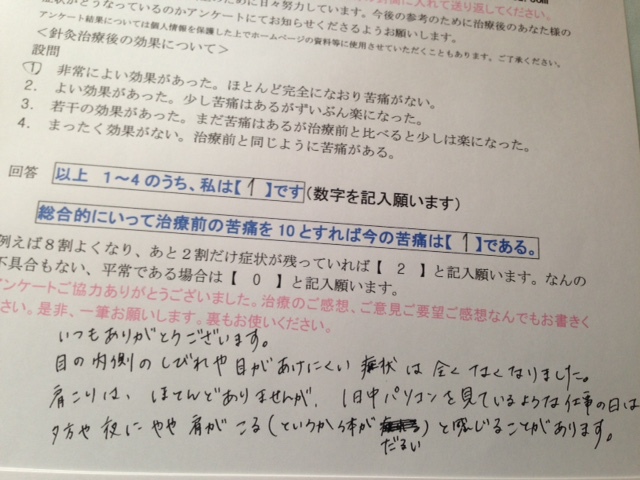 に入れて送り返してください。
ために日々努力しています。今後の参考のために治療後のあなた様の
症状がどうなっているのかアンケートにてお知らせくださるようお願いします。
アンケート結果については個人情報を保護した上でホームページの資料等に使用させていただくこともあります。ご了承ください。
<針灸治療後の効果について>
設問
1. 非常によい効果があった。ほとんど完全になおり苦痛がない。
2. よい効果があった。少し苦痛はあるがずいぶん楽になった。
3. 若干の効果があった。まだ苦痛はあるが治療前と比べると少しは楽になった。
4. まったく効果がない。治療前と同じように苦痛がある。
回答 以上 1~4のうち、私は【 1 】です(数字を記入願います)
総合的にいって治療前の苦痛を10とすれば今の苦痛は【 1 】である。
例えば8割よくなり、あと2割だけ症状が残っていれば【 2 】と記入願います。なんの
不具合もない、平常である場合は【 0 】と記入願います。
アンケートご協力ありがとうございました。治療のご感想、ご意見ご要望ご感想なんでもお書きく
さい。是非、一筆お願いします。裏もお使いください。
いつもありがとうございます。
目の内側のしびれや目があけにくい症状は全くなくなりました。
肩こりは、ほとんどありませんが、1日中パソコンを見ているような仕事の日は
夕方や夜にやや肩がこる(というか体がだるい)と感じることがあります。